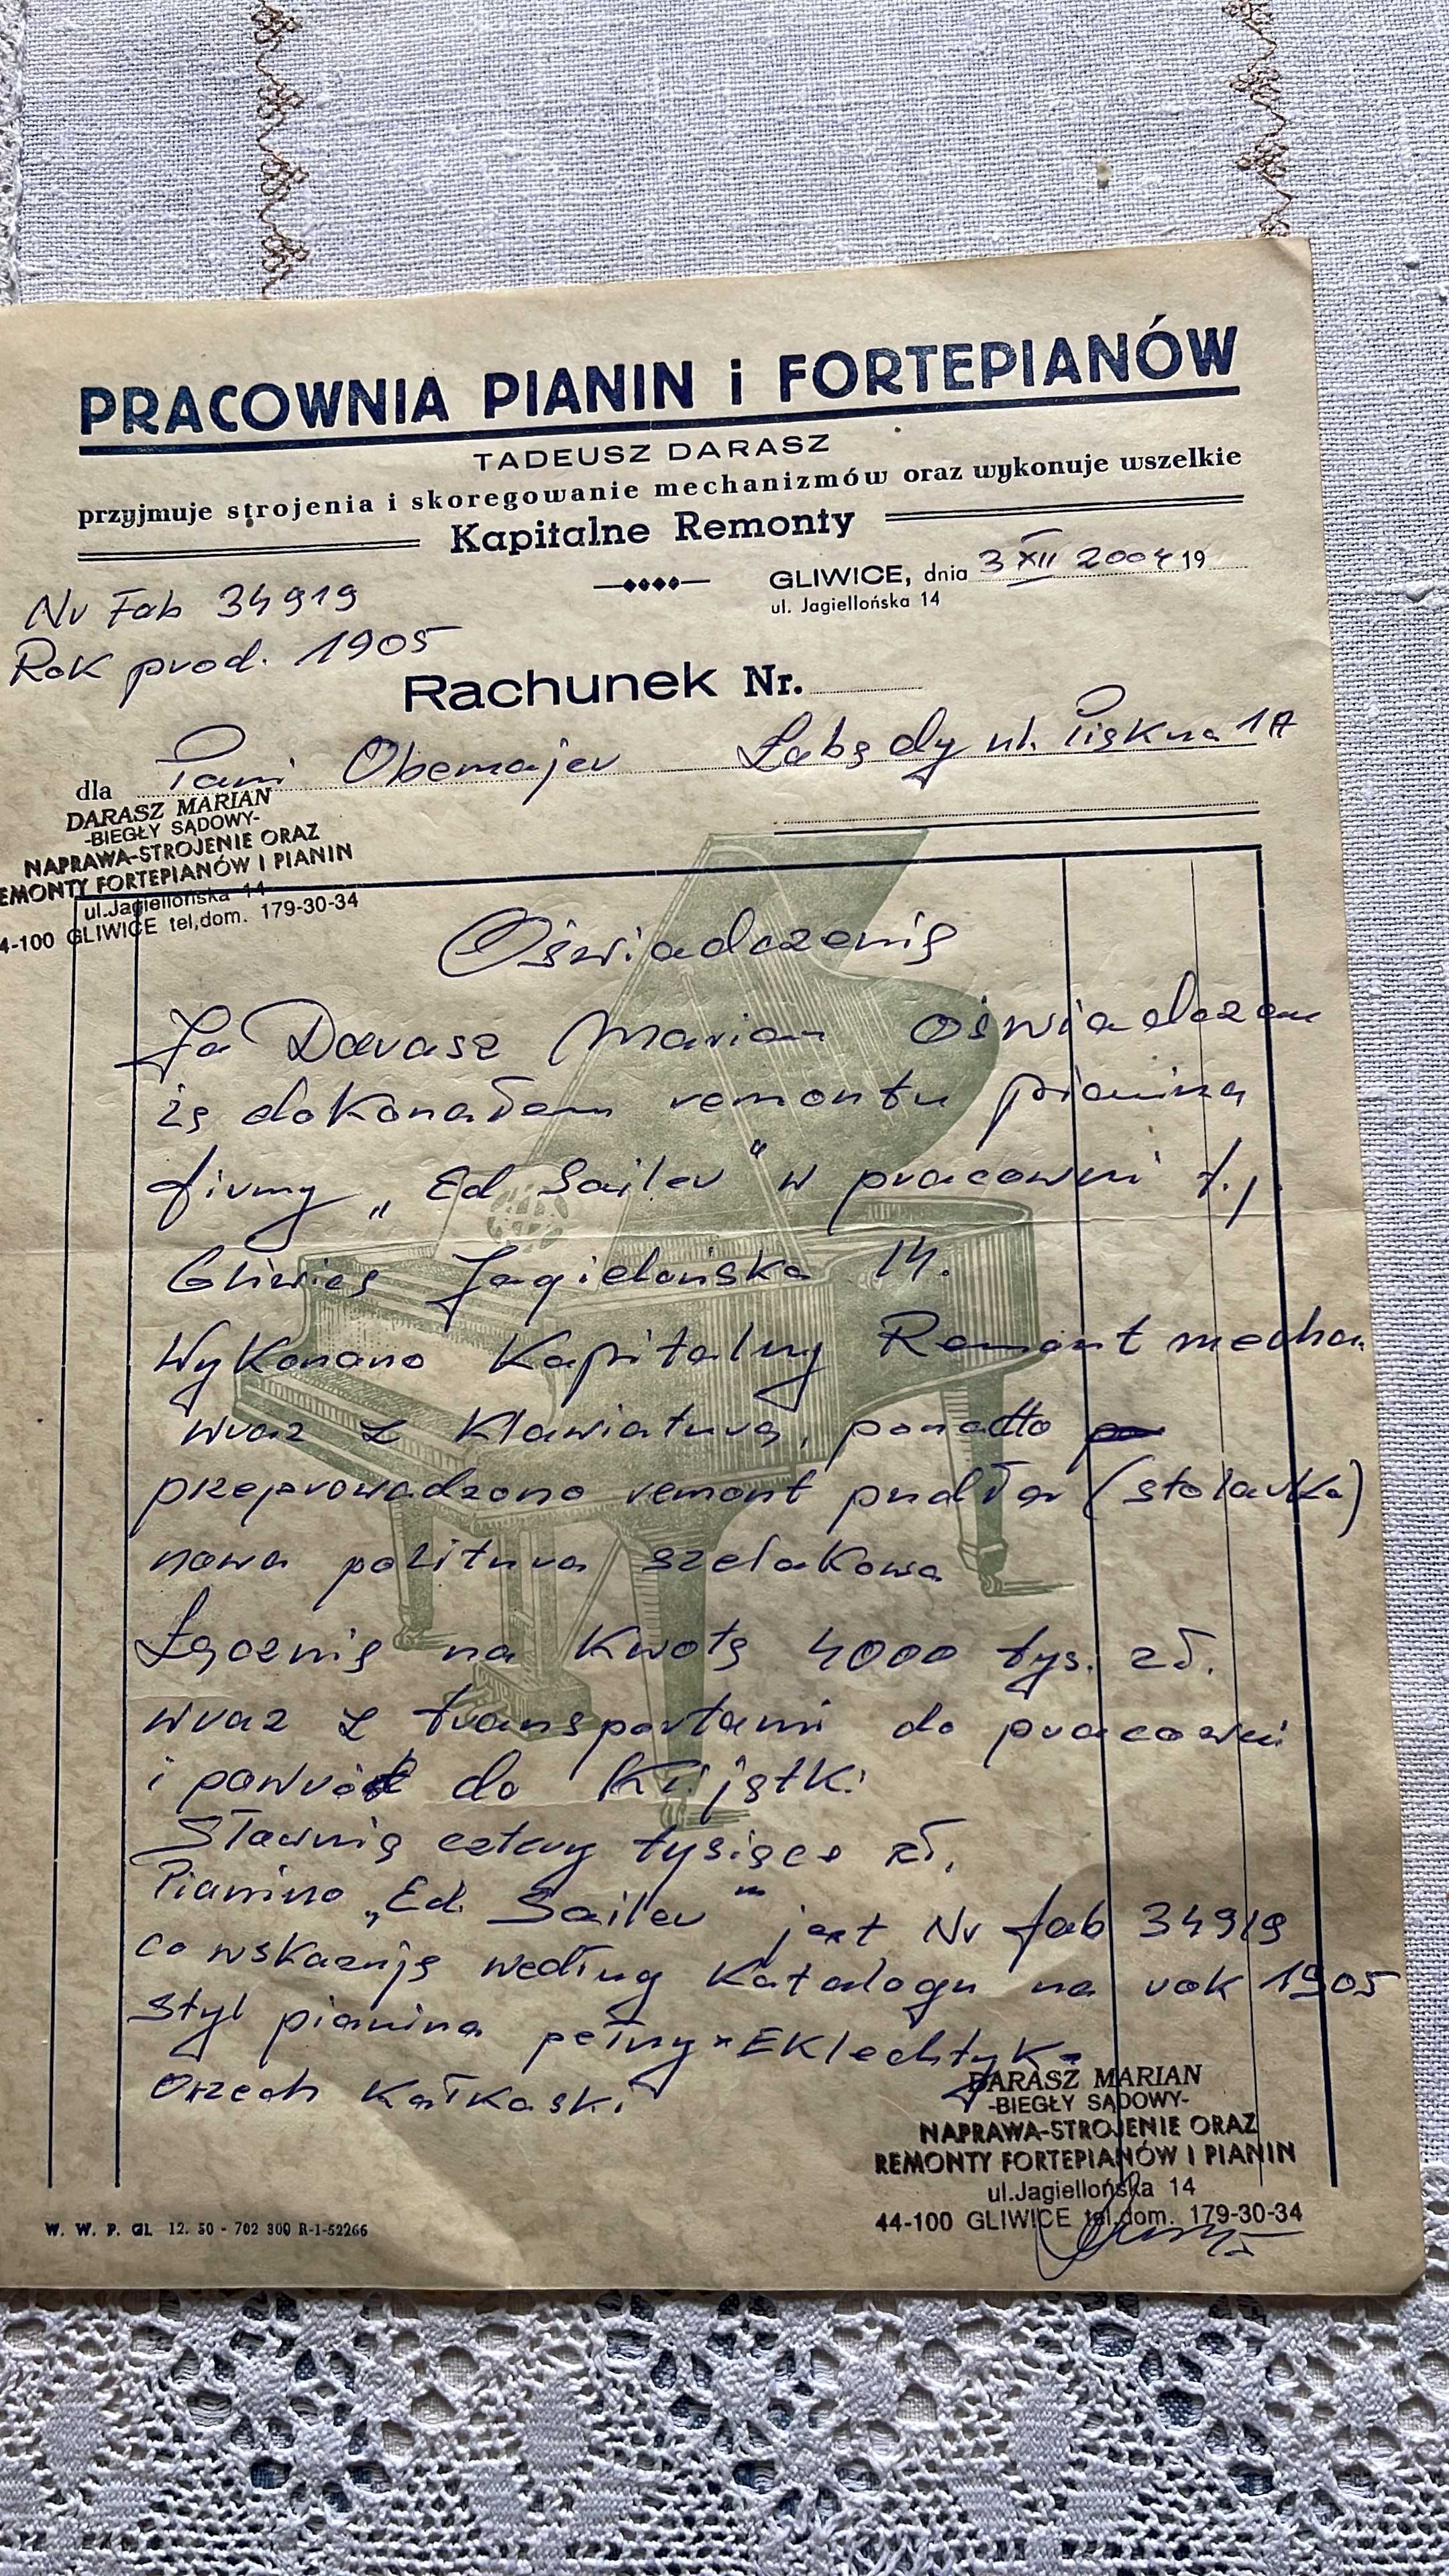 PRACOWNIA PIANIN i FORTEPIANÓW
TADEUSZ DARASZ
przyjmuje strojenia i skoregowanie mechanizmów oraz wykonuje wszelkie
Kapitalne Remonty
GLIWICE, dnia 3 XII 2004 19
ul. Jagiellońska 14
Nr Fab 34919
Rok prod. 1905
Rachunek Nr.
dla Pani Obemajer Łabędy ul. Piękna 1A
DARASZ MARIAN
-BIEGŁY SĄDOWY-
NAPRAWA-STROJENIE ORAZ
EMONTY FORTEPIANÓW I PIANIN
ul.Jagiellońska 14
4-100 GLIWICE tel,dom. 179-30-34
Oświadczenie
Ja Darasz Marian oświadczam
że dokonałem remontu pianina
firmy „Ed Sailer" w pracowni t.j
Gliwice Jagielońska 14.
Wykonano Kapitalny Remont mechan.
wraz z klawiaturą, ponadto
przeprowadzono remont pudła (stolarka)
nowa politura szelakowa
Łącznie na kwotę 4000 tys. zł.
wraz z transportami do pracowni
i powrót do
Słownie cztery tysiące zł.
Pianino „Ed. Sailer" jest Nr fab 34919
co wskazuje według Katalogu na rok 1905
Styl pianina pełny Eklechtyk
Orzech Kałkaski
DARASZ MARIAN
-BIEGŁY SĄDOWY-
NAPRAWA-STROJENIE ORAZ
REMONTY FORTEPIANÓW I PIANIN
ul.Jagiellońska 14
44-100 GLIWICE tel,dom. 179-30-34
W. W. P. GL 12. 50 - 702 300 R-1-52266